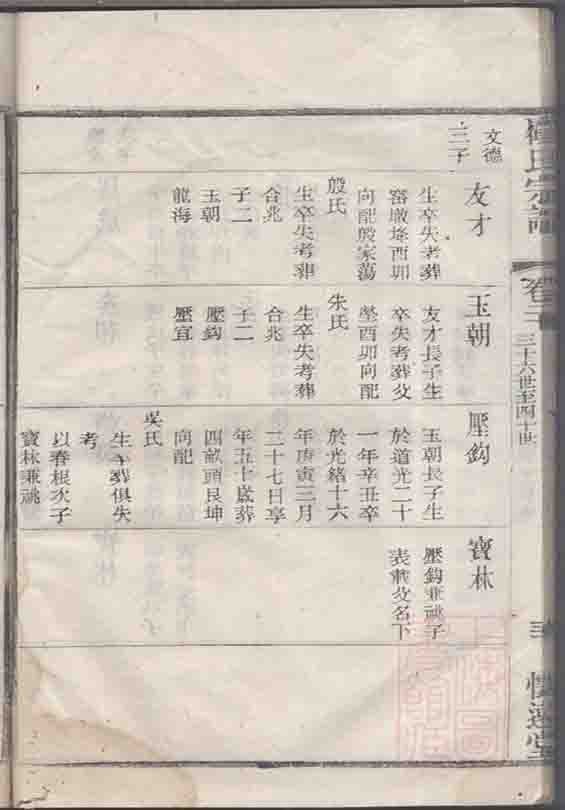 氏宗譜
卷二
三十六世至四十世
三
懷遠堂
文德
二子
友才
生卒失考葬
窑廠垛酉卯
向配殷家蕩
殷氏
生卒失考葬
合兆
子二
玉朝
龍海
玉朝
友才長子生
卒失考葬父
塋酉卯向配
朱氏
生卒失考葬
合兆
子二
壓鈎
壓宜
壓鈎
玉朝長子生
於道光二十
一年辛丑卒
於光緒十六
年庚寅三月
二十七日享
年五十歲葬
四畝頭艮坤
向配
吳氏
生卒葬俱失
考
以春根次子
寶林兼祧
寶林
壓鈎兼祧子
表載父名下